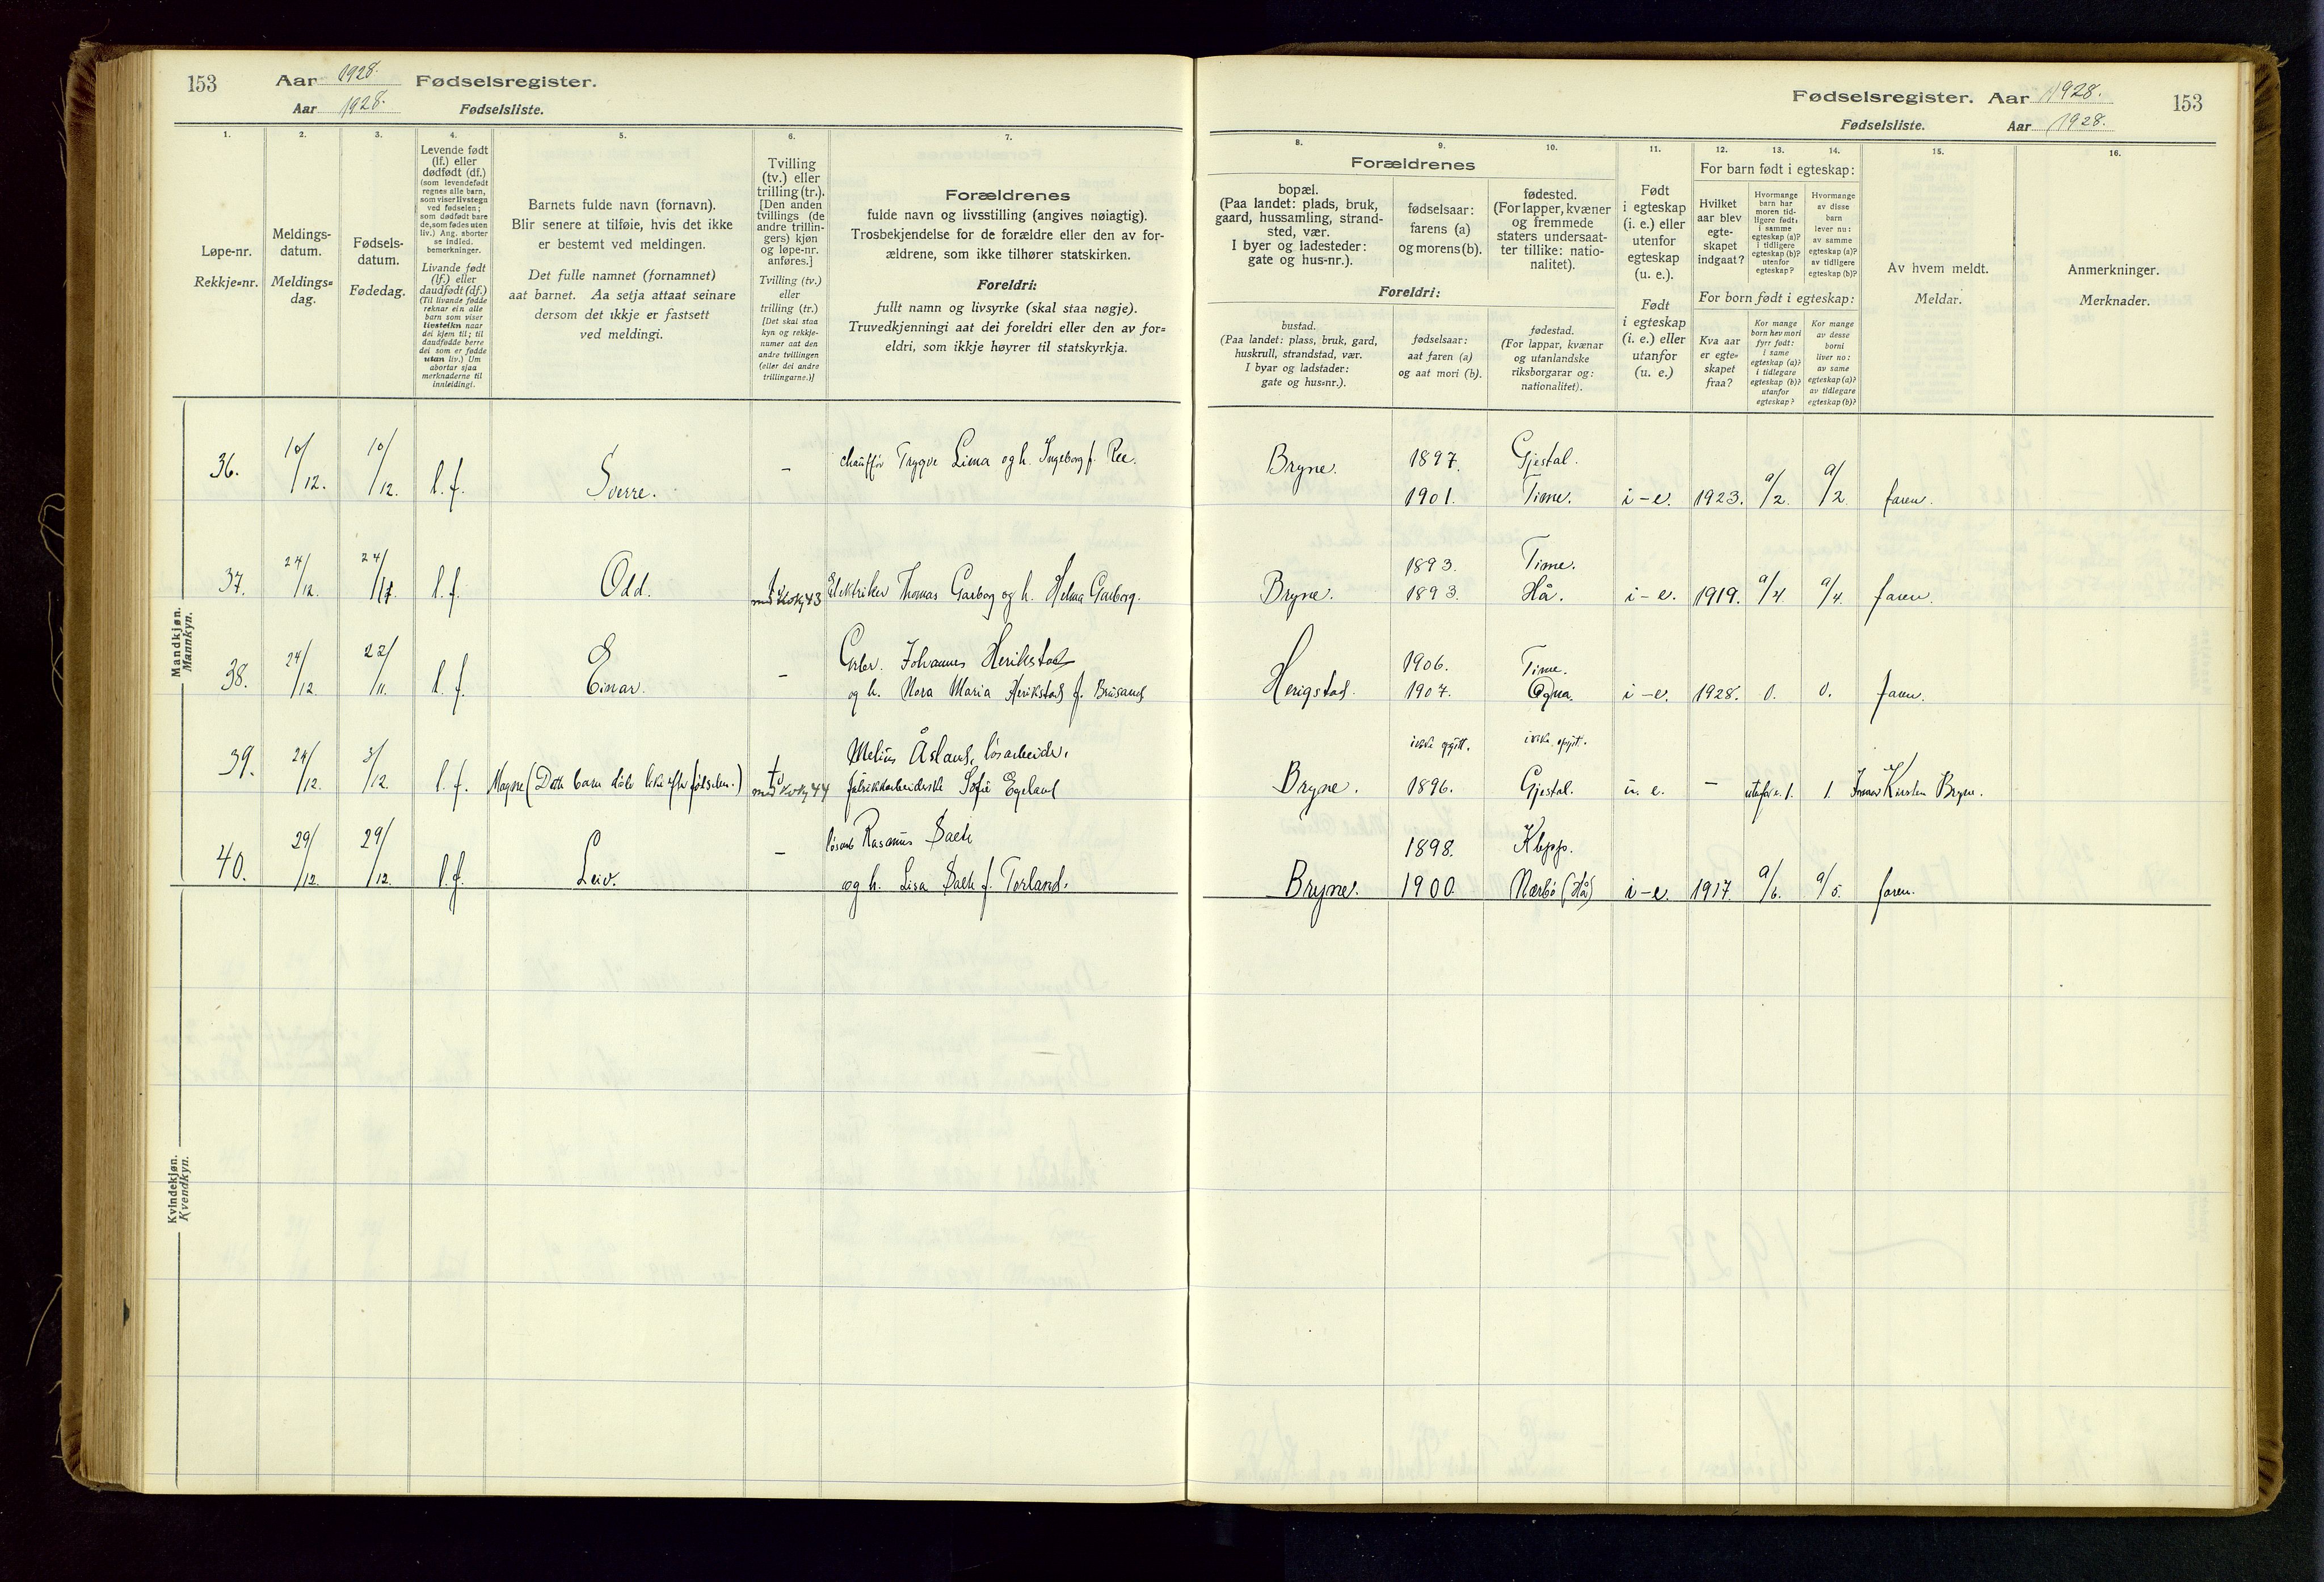 153 Aar 1928. Fødselsregister.
Aar 1928. Fødselsliste.
1. 2. 3. 4. 5. 6. 7.
Løpe-nr.
Rekkje-nr.
Meldings-
datum.
Meldings-
dag.
Fødsels-
datum.
Fødedag.
Levende født
(lf.) eller
dødfødt (df.)
(som levendefødt
regnes alle barn,
som viser livstegn
ved fødselen;
som dødfødt bare
de, som fødes uten
liv.) Ang. aborter
se indled.
bemerkninger.
Livande født
(lf.) eller
daudfødt (df.)
(Til livande fødde
reknar ein alle
barn som viser
livsteikn naar
dei kjem til; til
daudfødde berre
dei som er fødde
utan liv.) Um
abortar sjaa
merknaderne til
innleidingi.
Barnets fulde navn (fornavn).
Blir senere at tilføie, hvis det ikke
er bestemt ved meldingen.
Det fulle namnet (fornamnet)
aat barnet. Aa setja attaat seinare
dersom det ikkje er fastsett
ved meldingi.
Tvilling
(tv.) eller
trilling (tr.).
[Den anden
tvillings (de
andre trillin-
gers) kjøn
og løpe-nr.
anføres.]
Tvilling (tv.)
eller
trilling (tr.)
[Det skal staa
kyn og rekkje-
numer aat den
andre tvillingen
(eller dei andre
trillingarne.)]
Forældrenes
fulde navn og livsstilling (angives nøiagtig).
Trosbekjendelse for de forældre eller den av for-
ældrene, som ikke tilhører statskirken.
Foreldri:
fullt namn og livsyrke (skal staa nøgje).
Truvedkjenningi aat dei foreldri eller den av for-
eldri, som ikkje høyrer til statskyrkja.
Mandkjøn.
Mannkyn.
36. 10/12. 10/12. l. f. Sverre. – chauffør Trygve Lima og h. Ingeborg f. Ree.
37. 24/12. 24/12. l. f. Odd. Elektriker Thomas Garborg og h. Helma Garborg.
38. 24/12. 22/11. l. f. Einar. – Johannes Herikstad
og h. Nora Maria Herikstad f. Brusand
39. 24/12. 3/12. l. f. Magne (Dette barn døde like efter fødselen.) Melius Åsland, løsarbeider.
fabrikkarbeiderske Sofie Egeland
40. 29/12. 29/12. l. f. Leiv. – løsarb Rasmus Sæle
og h. Lisa Sæle f. Torland.
Kvindekjøn.
Kvendkyn.
Fødselsregister. Aar 1928. 153
Fødselsliste. Aar 1928.
8. 9. 10. 11. 12. 13. 14. 15. 16.
Forældrenes
bopæl.
(Paa landet: plads, bruk,
gaard, hussamling, strand-
sted, vær.
I byer og ladesteder:
gate og hus-nr.).
fødselsaar:
farens (a)
og morens (b).
fødested.
(For lapper, kvæner
og fremmede
staters undersaat-
ter tillike: natio-
nalitet).
Foreldri:
bustad.
(Paa landet: plass, bruk, gard,
huskrull, strandstad, vær.
I byar og ladstader:
gate og hus-nr.).
fødselsaar:
aat faren (a)
og aat mori (b).
fødestad.
(For lappar, kvænar
og utanlandske
riksborgarar og:
nationalitet).
Født
i egteskap
(i. e.) eller
utenfor
egteskap
(u. e.).
Født
i egteskap
(i. e.) eller
utanfor
(u. e.)
For barn født i egteskap:
Hvilket
aar blev
egte-
skapet
indgaat?
Hvormange
barn har
moren tid-
ligere født,
i samme
egteskap (a)?
i tidligere
egteskap (b)?
utenfor
egteskap?
Hvormange
av disse
barn
lever nu:
av samme
egteskap (a)?
av tidligere
egteskap (b)?
For born født i egteskap:
Kva aar
er egte-
skapet
fraa?
Kor mange
born hev mori
fyrr født:
i same
egteskap (a)?
i tidlegare
egteskap (b)?
utanfor
egteskap?
Kor mange
av desse
borni
liver no:
av same
egteskap (a)?
av tidlegare
egteskap (b)?
Av hvem meldt.
Meldar.
Anmerkninger.
Merknader.
Bryne. 1897. Gjestal.
1901. Time. i – e. 1923. a/2. a/2 faren.
1893. Time.
Bryne. 1893. Hå. i – e. 1919. a/4 a/4. faren.
1906. Time.
Herigstad. 1907. Ogna. i – e. 1928. 0. 0. faren.
ikke opgitt. ikke opgit.
Bryne. 1896. Gjestal. u. e. – 1. 1. Kirsten Bryne.
1898. Klepp.
Bryne. 1900. Nærbø (Hå) i – e. 1917. a/6. a/5. faren.